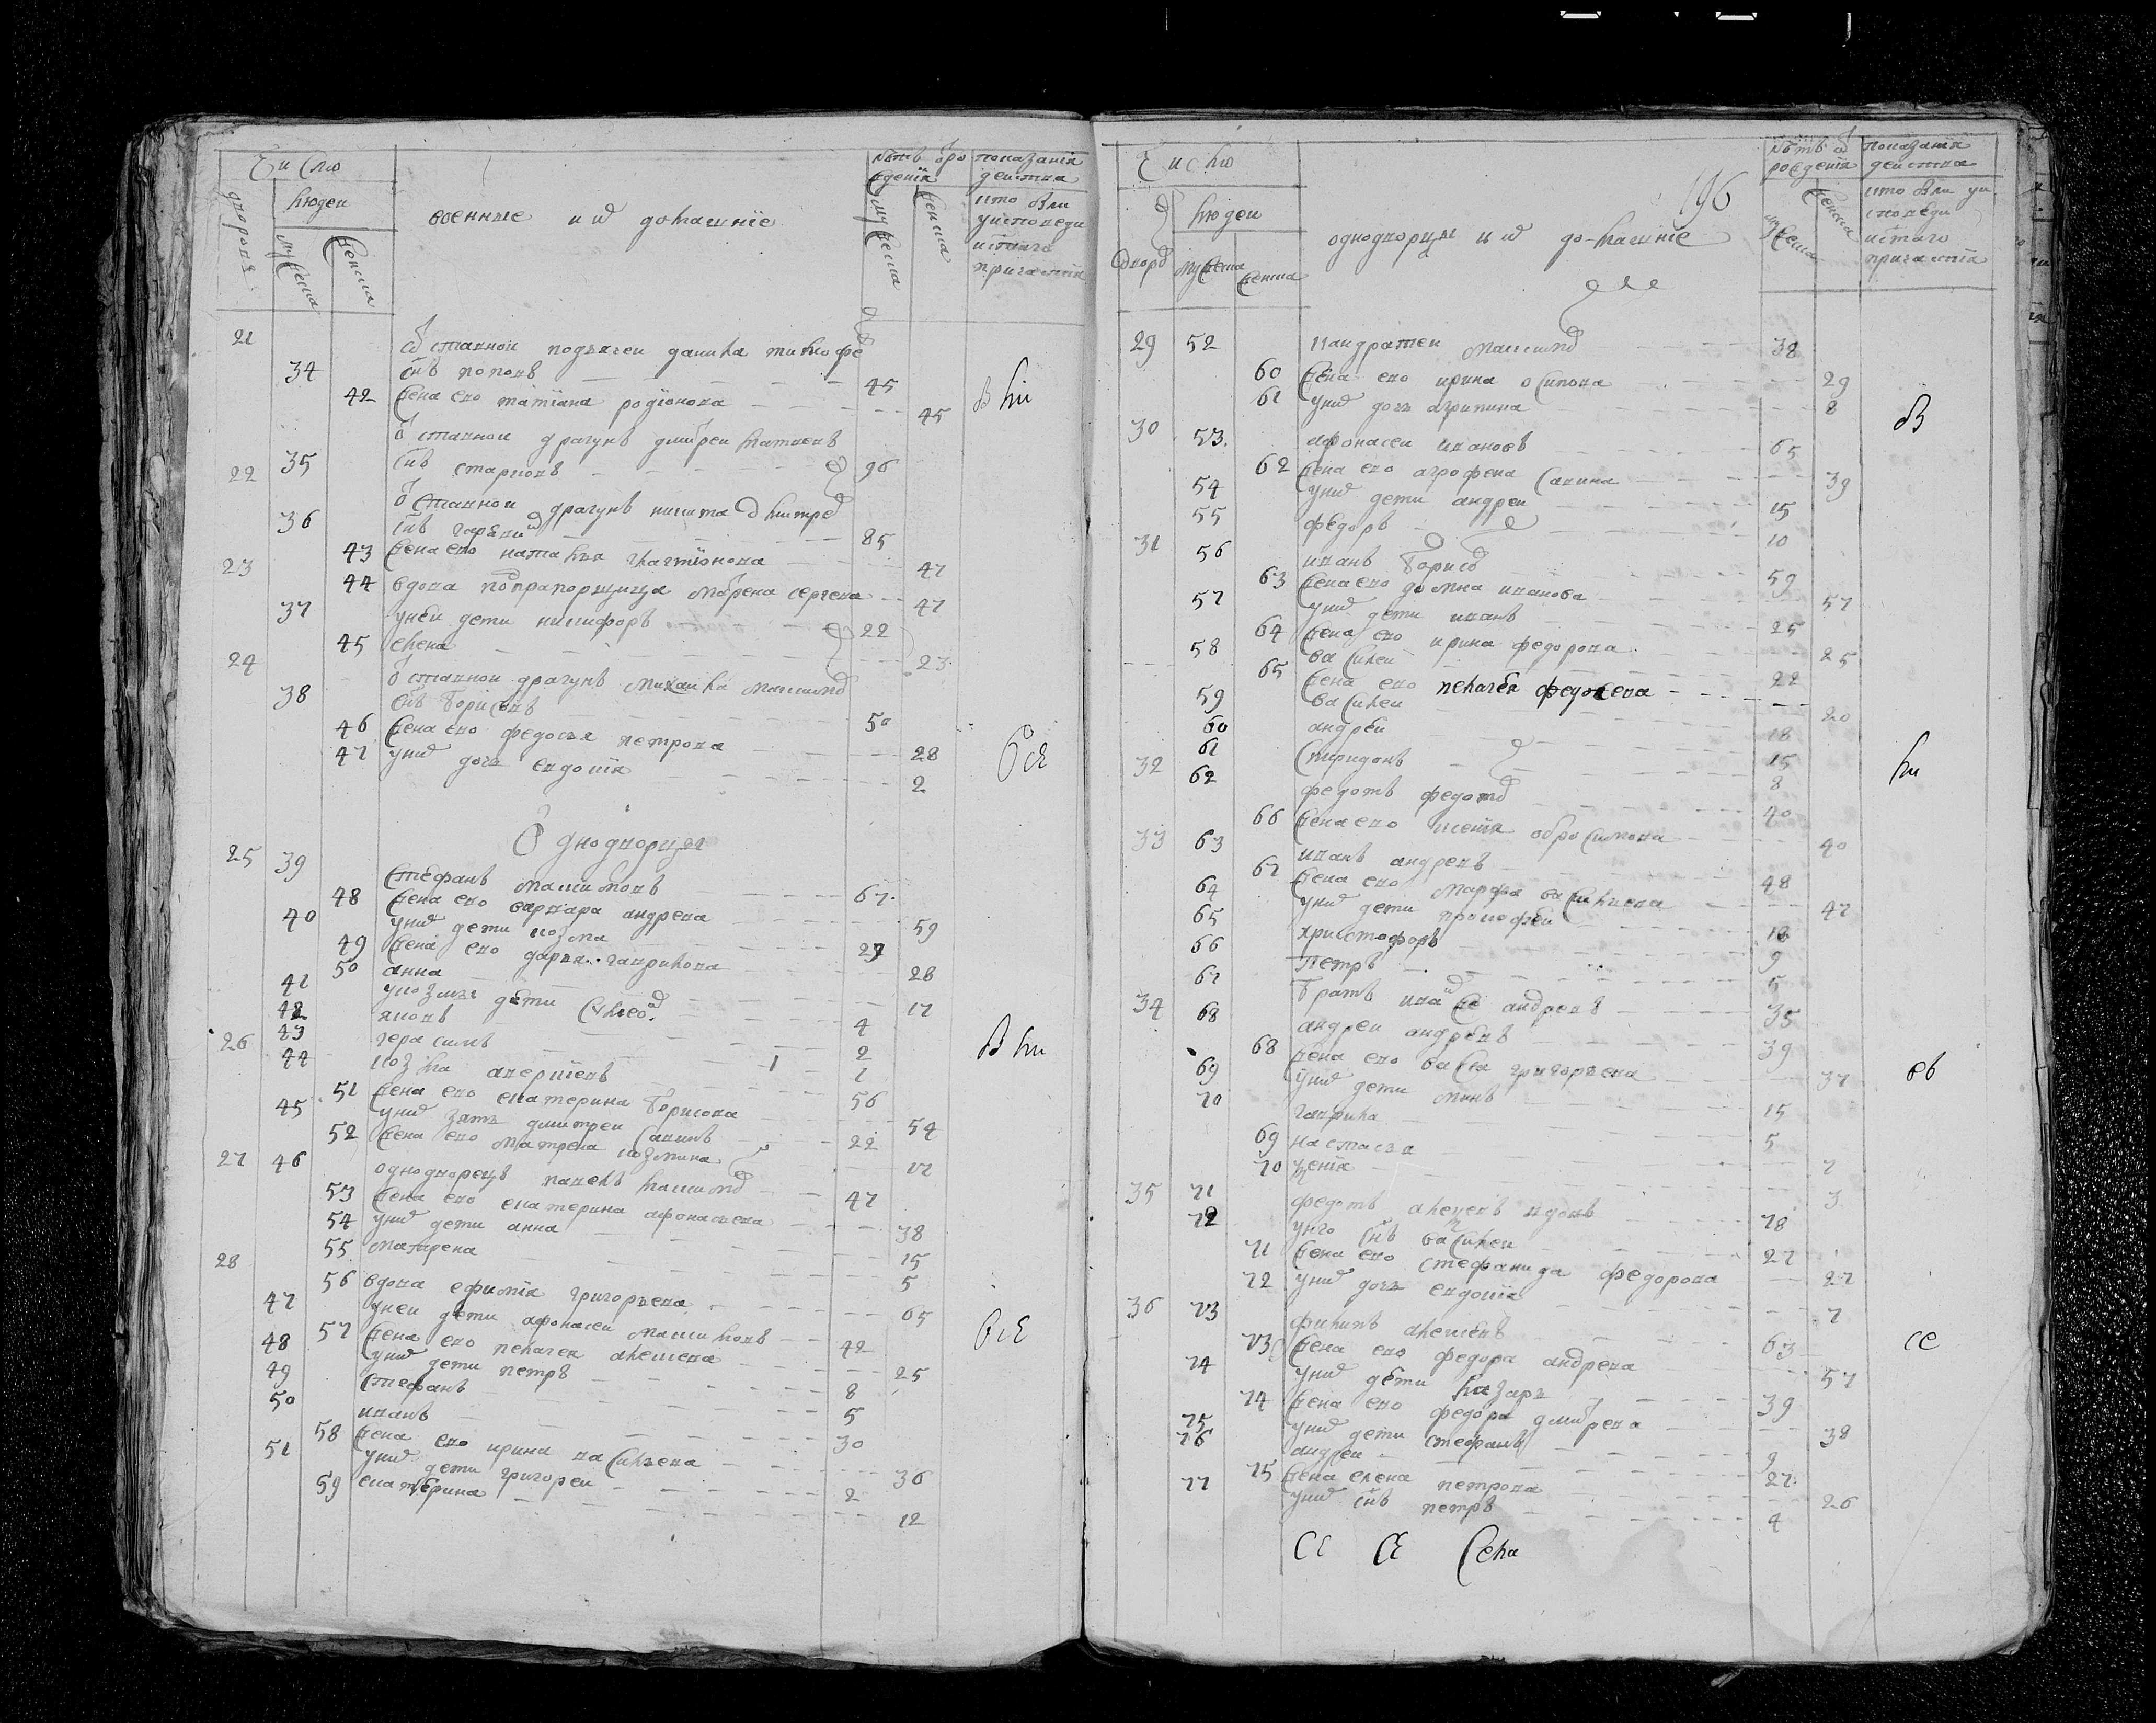 Число
дворовъ
людеи
мужеска
женска
военные и их домашнїе
летъ от рождения
мужеска
женска
показанїя действа
кто были у исповеди и святаго причастия
21
34 отставнои подьячеи данила тимофе
евъ сынъ поповъ 45
42 жена ево татїана родїонова 45
22 35 отставнои драгунъ дмитреи матвеевъ
сынъ старцовъ 96
36 отставнои драгунъ никита дмитрев
сынъ 85
43 жена ево наталья 47
23 44 вдова подпрапорщица матрена сергеева 47
37 у неи дети никифоръ 22
45 елена 23
24 38 отставнои драгунъ михаила максимов
сынъ борисовъ 50
46 жена ево федосья петрова 28
47 у них дочь евдокїя 2
Однодворцы
25 39 стефанъ максимовъ 67
48 жена ево варвара андреева 59
40 у них дети козма 27
49 жена ево дарья гаврилова 28
50 анна 17
41 у козмы дети
42 яковъ 4
43 герасимъ 2
26 44 козма аверкїевъ 1
51 жена ево екатерина борисова 56
45 у них зять дмитреи савинъ 54
52 жена ево матрена козмина 22
27 46 однодворецъ павелъ максимов 17
53 жена ево екатерина афонасьева 47
54 у них дети анна 38
55 матрена 15
28 56 вдова ефимїя григорьева 5
47 у неи дети афонасеи максимовъ 65
57 жена ево пелагея алексеева 42
48 у них дети петръ 25
49 стефанъ 8
50 иванъ 5
58 жена ево ирина васильева 30
51 у них дети григореи 36
59 екатерина 2
12
Число
дворов
людеи
мужеска
женска
196
однодворцы и их домашнїе
летъ от рождения
женска
показанїя действа
кто были у исповеди и святаго причастїя
29 52 кандратеи максимов 38
60 жена ево ирина осипова 29
61 у них дочь агрипина 8
30 53 афонасеи ивановъ 65
62 жена ево агрофена савина 39
54 у них дети андреи 15
55 федоръ 10
31 56 иванъ борисов 59
63 жена ево домна иванова 57
57 у них дети иванъ 25
64 жена ево ирина федорова 25
58 василеи 22
65 жена ево пелагея федосеева 20
59 василеи 18
60 андреи 15
61 спиридонъ 8
32 62 федотъ федотов 40
66 жена ево ксенїя обросимова 40
33 63 иванъ андреевъ 48
67 жена ево марфа васильева 47
64 у них дети прокофеи 18
65 христофоръ 9
66 петръ 5
67 братъ андреевъ 35
34 68 андреи андреевъ 39
68 жена ево васса григорьева 37
69 у них дети 15
70 гаврила 5
69 настасья 7
70 ксенїя 3
35 71 федотъ алексеевъ вдовъ 78
72 у него сынъ василеи 27
71 жена ево стефанида федорова 27
72 у них дочь евдокїя 7
36 73 филипъ алексеевъ 63
73 жена ево федора андреева 57
74 у них дети лазарь 39
74 жена ево федора дмитреева 38
75 у них дети стефанъ 9
76 андреи 27
75 жена елена петрова 26
77 у них сынъ петръ 4
села